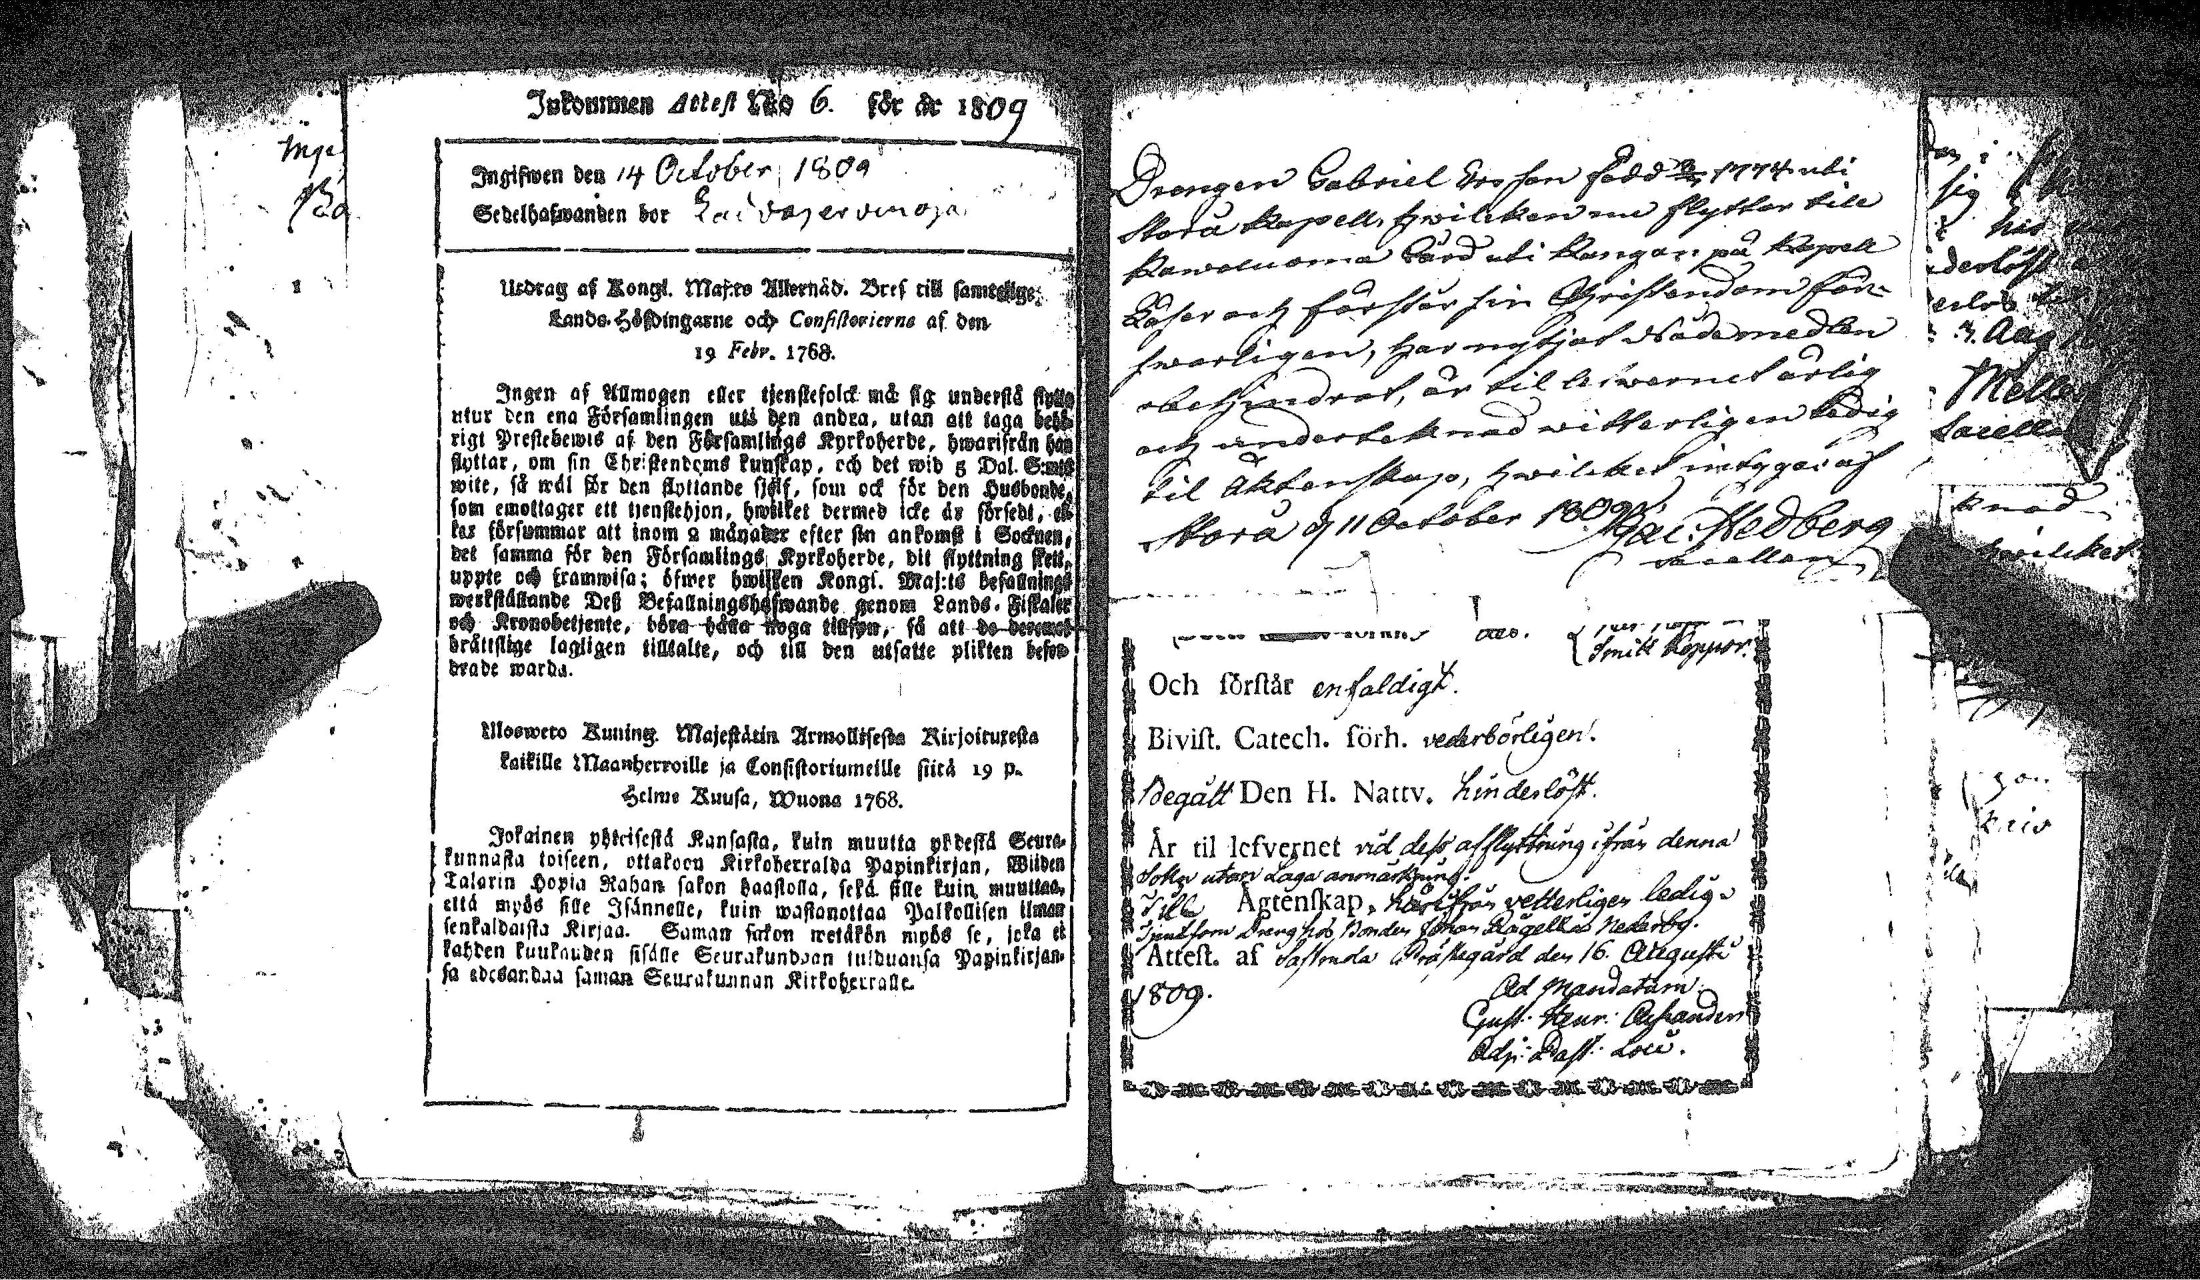 Inkommen Attest No 6. för år 1809
Ingifwen den 14 October 1809
Sedelhafwanden bor
Utdrag af Kongl. Maj:ts Allernåd. Bref till samtelige
Lands-Höfdingarne och Consistorierne af den
19 Febr. 1768.
Ingen af Allmogen eller tjenstefolck må sig understå flytta
utur den ena Församlingen uti den andra, utan att taga behö-
rigt Prestebewis af den Församlings Kyrkoherde, hwarifrån han
flyttar, om sin Christendoms kunskap, och det wid 5 Dal. S:mts
wite, så wäl för den flyttande sjelf, som ock för den Husbonde,
som emottager ett tjenstehjon, hwilket dermed icke är försedt, el-
ler försummar att inom 2 månader efter sin ankomst i Socknen,
det samma för den Församlings Kyrkoherde, dit flyttning skett,
uppte och framwisa; öfwer hwilken Kongl. Maj:ts befallnings
werkställande Deß Befallningshafwande genom Lands-Fiskaler
och Kronobetjente, böra hålla noga tillsyn, så att de deremot
bråttslige lagligen tilltalte, och till den utsatte plikten befor-
drade warda.
Ulosweto Kuning. Majestätin Armollisesta Kirjoituxesta
kaikille Maanherroille ja Consistoriumeille siitä 19 p.
Helme Kuusa, Wuona 1768.
Jokainen yhteisestä Kansasta, kuin muutta yhdestä Seura-
kunnasta toiseen, ottakoon Kirkoherralda Papinkirjan, Wiiden
Talarin Hopia Rahan sakon haastolla, sekä sille kuin muuttaa,
että myös sille Isännelle, kuin wastanottaa Palkollisen ilman
senkaldaista Kirjaa. Saman sakon wetäkön myös se, joka ei
kahden kuukauden sisälle Seurakundaan tulduansa Papinkirjan-
sa edesandaa saman Seurakunnan Kirkoherralle.
Drengen Gabriel Ersson född 1774 uti
Storå Kapell, hwilcken nu flyttar till
gård uti Kangan på Kapell
Läser och förstår sin Christendom för-
swarligen, har nytjat Nådemedlen
obehindrat, är til lefwernet ärlig
och underteknad witterligen ledig
til Äktenskap, hwilcket intygar af
Storå d 11 October 1809. Jac. Hedberg
Sacellan
Smitt Koppor.
Och förstår enfaldigt.
Bivist. Catech. förh. vederbörligen.
Begått Den H. Nattv. hinderlöst.
Är til lefvernet vid dess afflyttning ifrån denna
Sokn utan Laga anmärkning.
Till Ägtenskap, härifrån vetterligen ledig.
Tjent som Dreng hos Bonden Johan
Attest. af Sastmola Prästegård den 16. Augusti
1809.
Ad Mandatum
Gust. Henr.
Adj. Past. Loci.